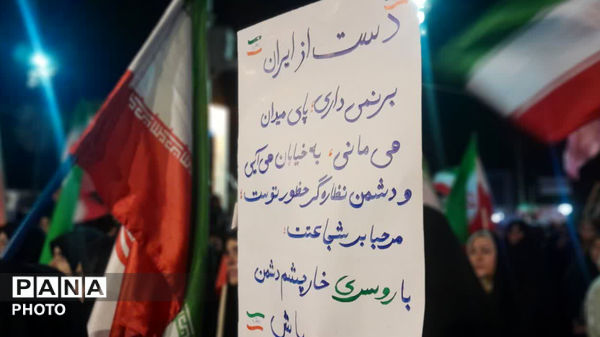 دست از ایران
بر نمی داری؛ پای میدان
می مانی، به خیابان می آیی
و دشمن نظاره گر حضور توست؛
مرحبا بر شجاعتت؛
با روسری خار چشم دشمن
باش
PANA
PHOTO